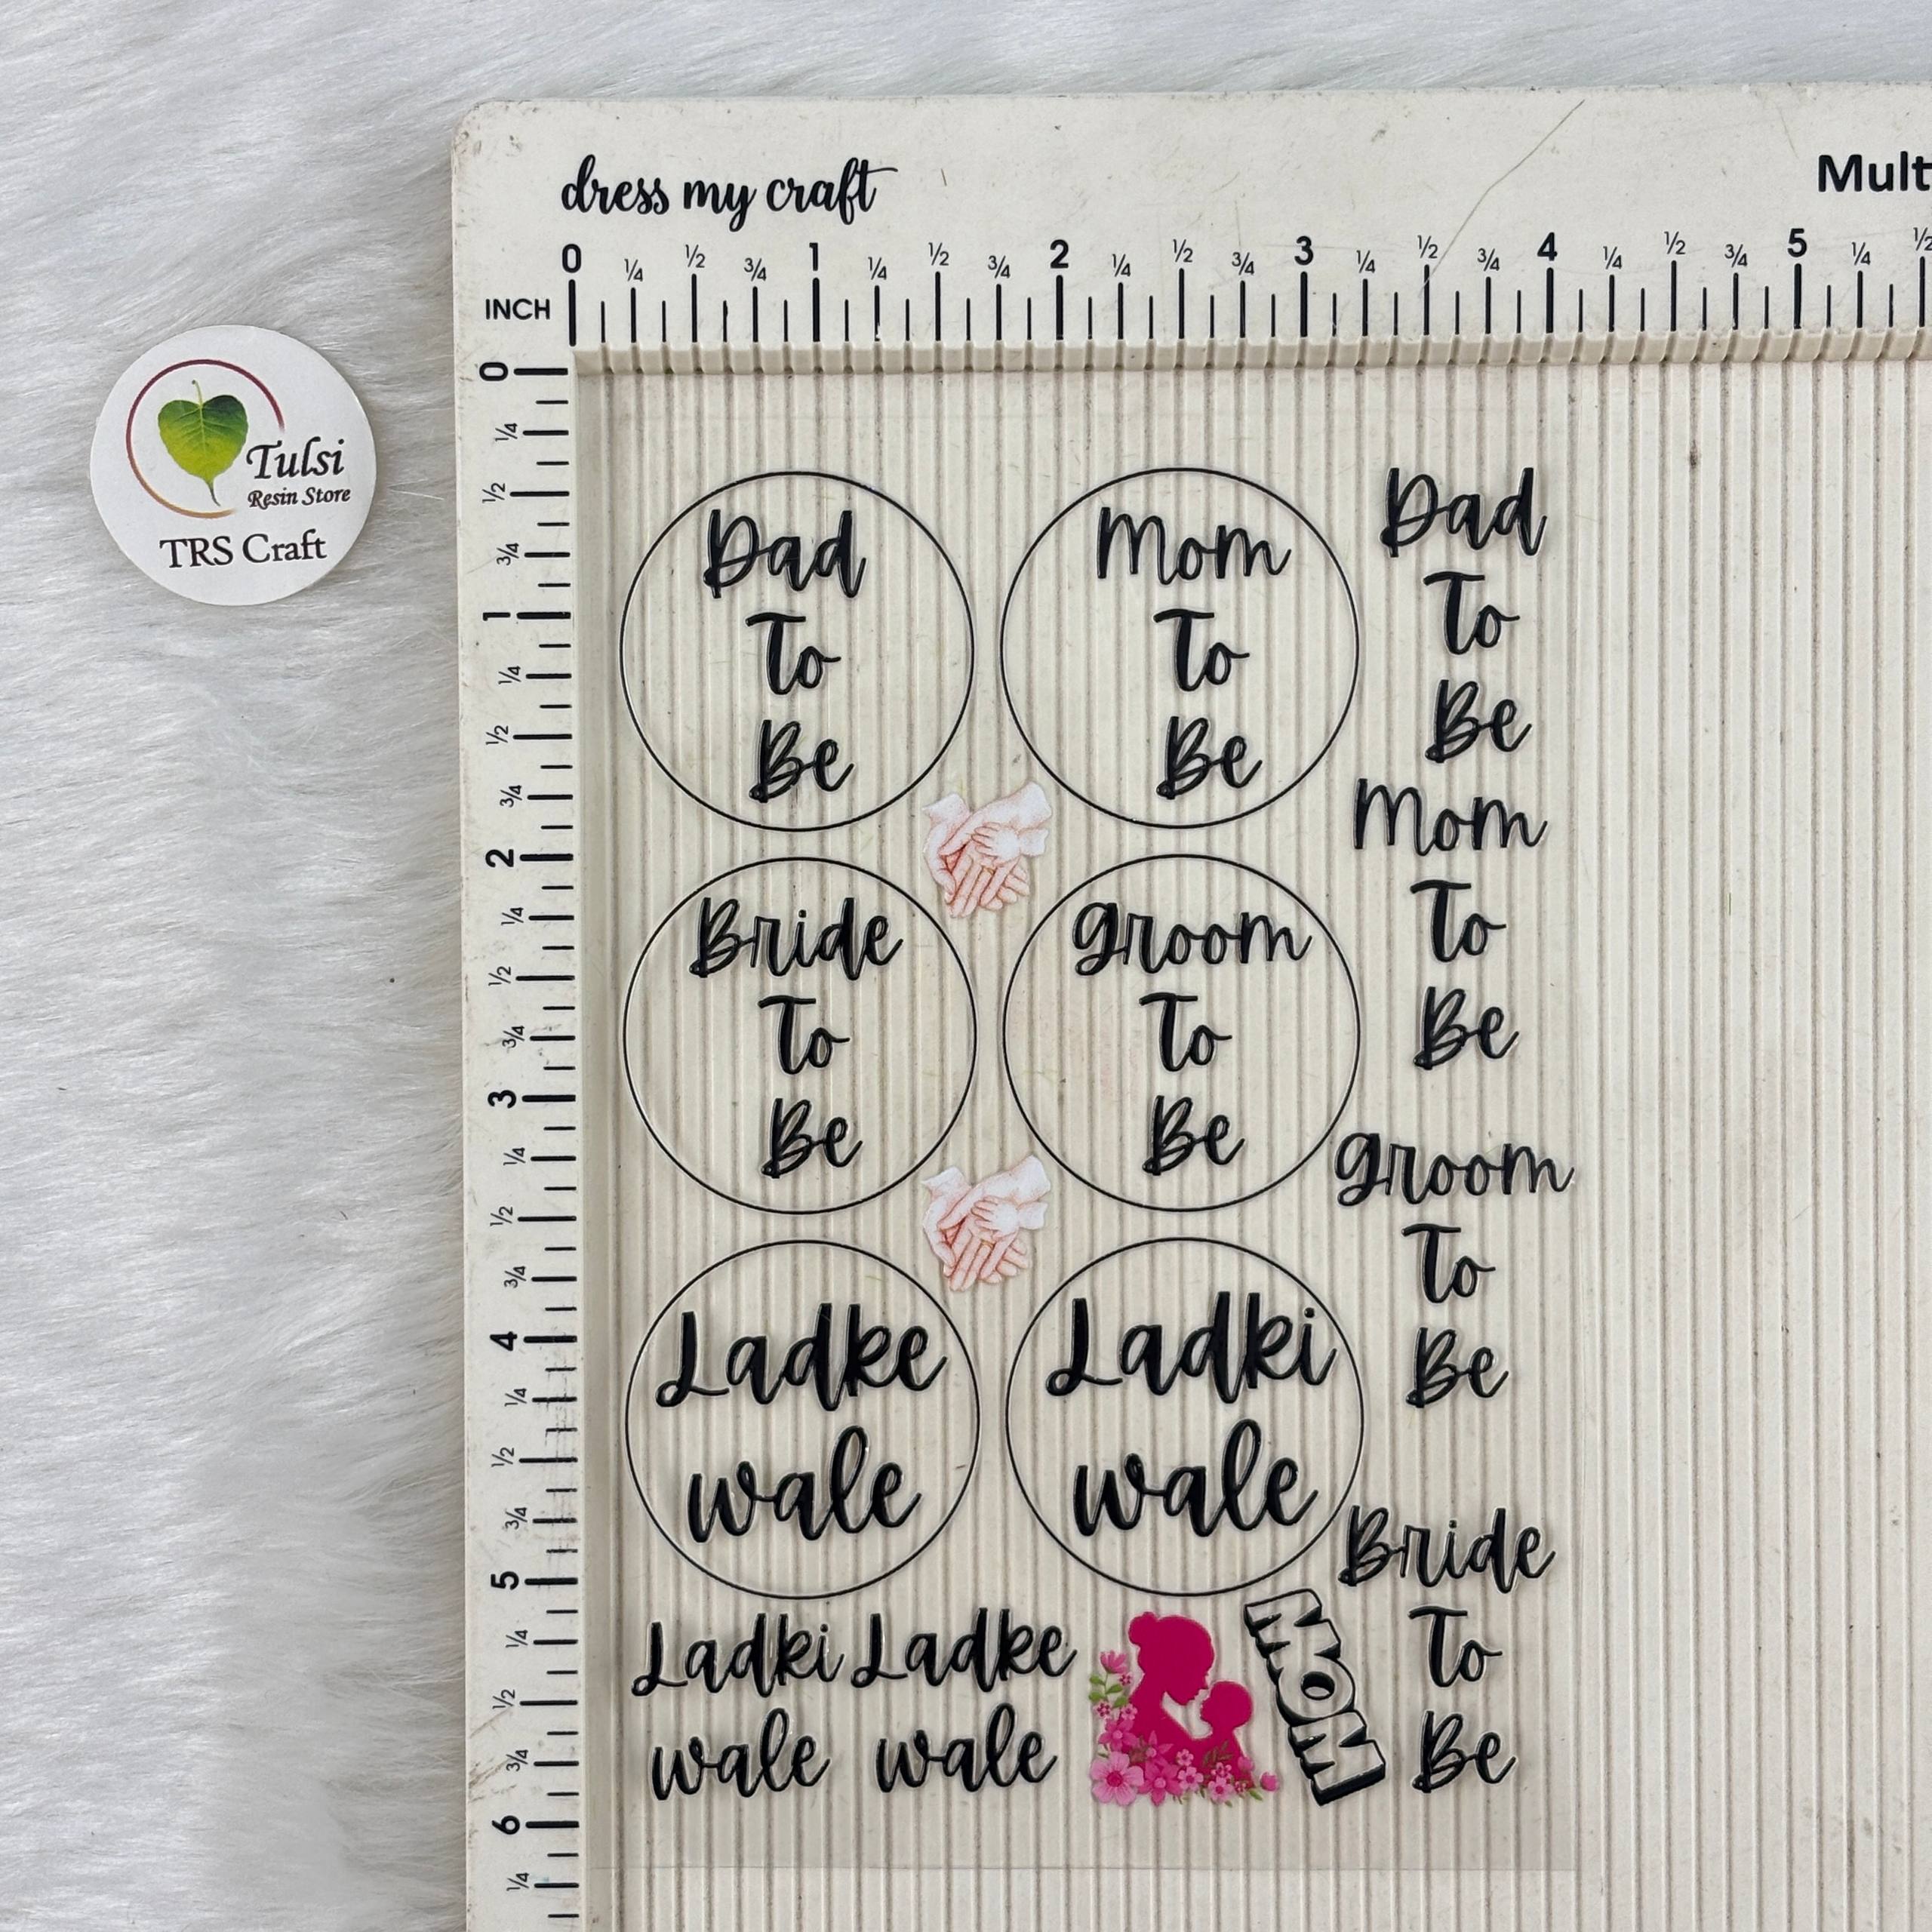 dress my craft
Mult
0 ¼ ½ ¾ 1 ¼ ½ ¾ 2 ¼ ½ ¾ 3 ¼ ½ ¾ 4 ¼ ½ ¾ 5 ¼ ½
INCH
0
¼
½
¾
1
¼
½
¾
2
¼
½
¾
3
¼
½
¾
4
¼
½
¾
5
¼
½
¾
6
¼
Tulsi
Resin Store
TRS Craft
Dad
To
Be
Mom
To
Be
Dad
To
Be
Bride
To
Be
groom
To
Be
Mom
To
Be
Ladke
wale
Ladki
wale
groom
To
Be
Ladki
wale
Ladke
wale
MOM
Bride
To
Be